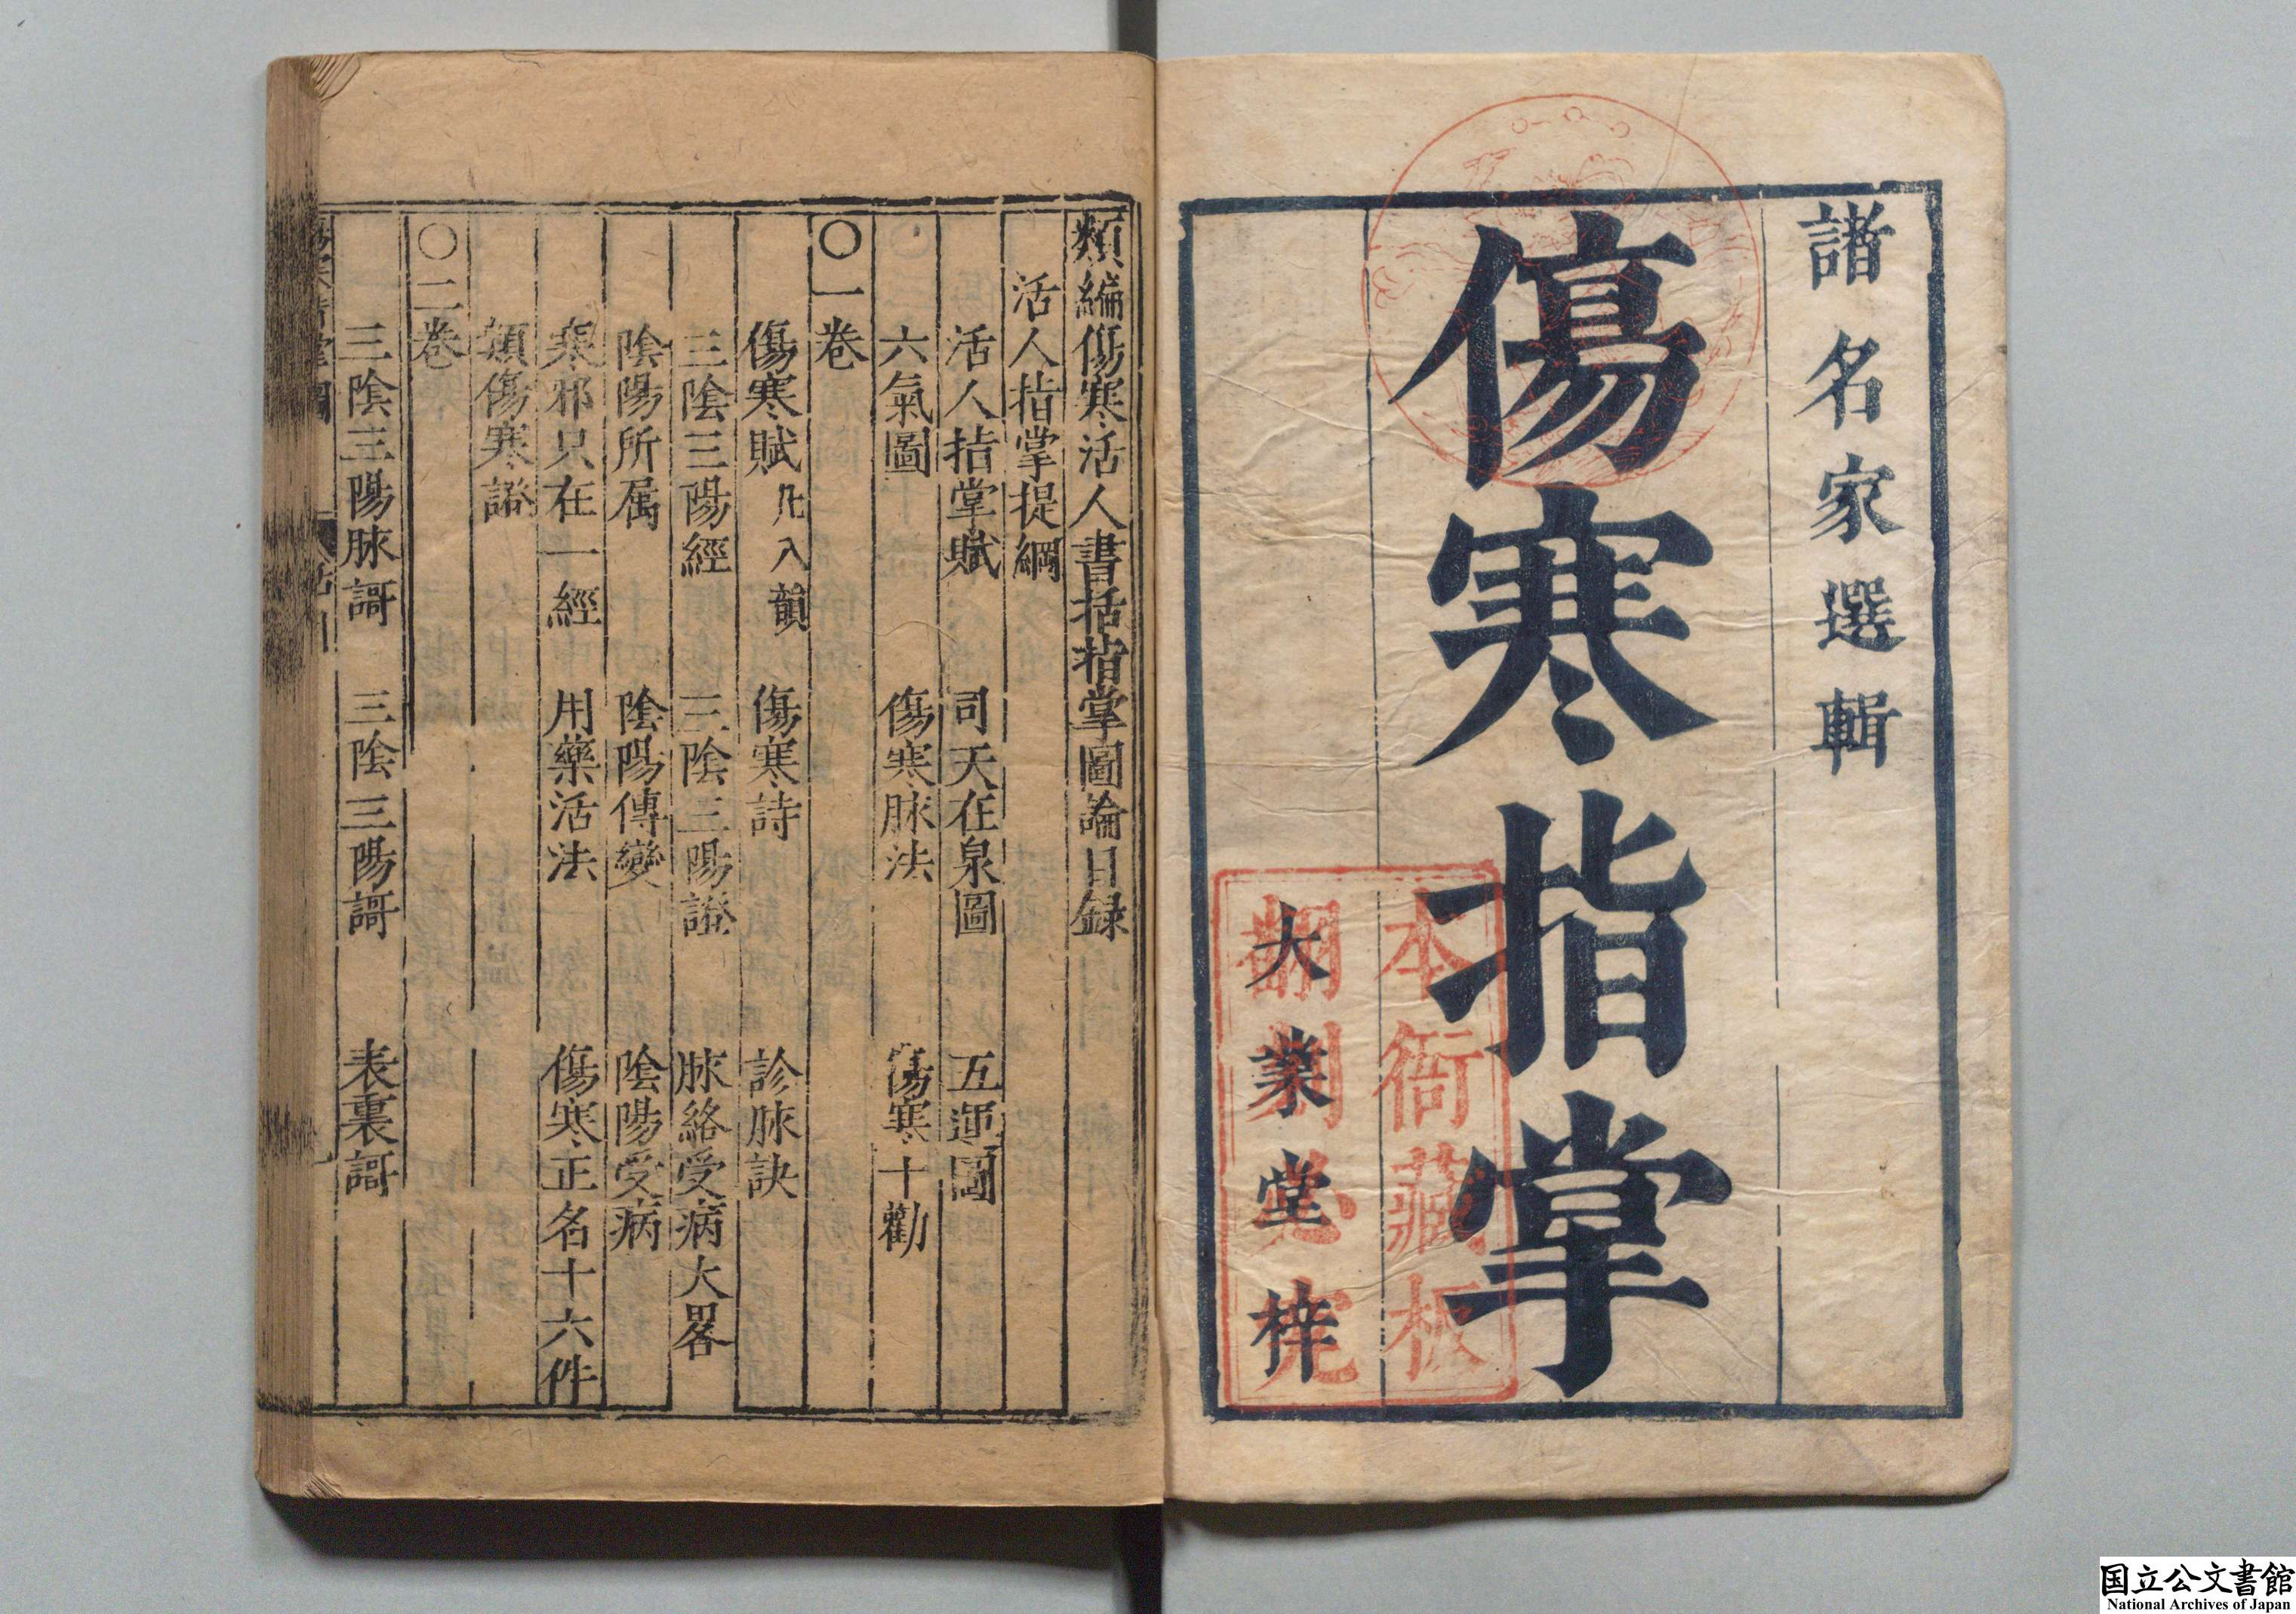 諸名家選輯
傷寒指掌
大業堂梓
本衙藏板
翻刻必究
類編傷寒活人書括指掌圖論目録
活人指掌提綱
活人指掌賦 司天在泉圖 五運圖
六氣圖 傷寒脉法 傷寒十勸
〇一卷
傷寒賦 凡八韻 傷寒詩 診脉訣
三陰三陽經 三陰三陽證 脉絡受病大畧
陰陽所属 陰陽傳變 陰陽受病
寒邪只在一經 用藥活法 傷寒正名十六件
類傷寒證
〇二卷
三陰三陽脉謌 三陰三陽謌 表裏謌
国立公文書館
National Archives of Japan